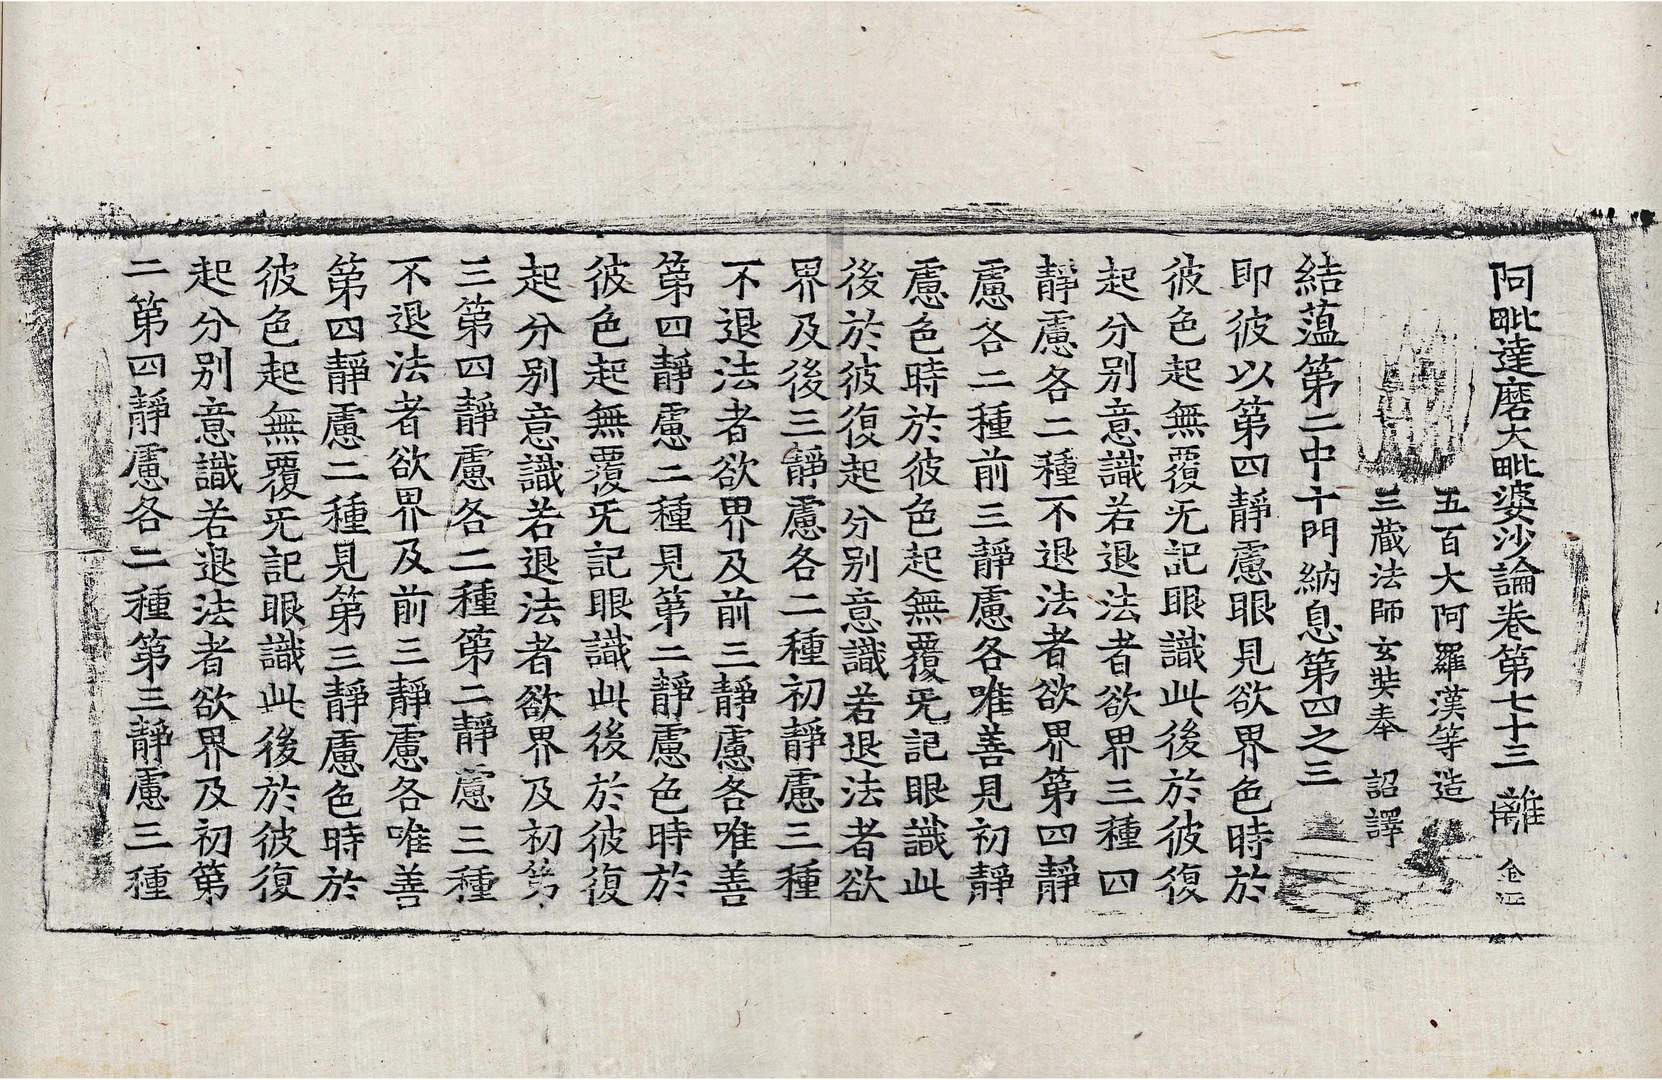 阿毗達磨大毗婆沙論卷第七十三 離
五百大阿羅漢等造
三藏法師玄奘奉 詔譯
結蕰第二中十門納息第四之三
即彼以第四靜慮眼見欲界色時於
彼色起無覆无記眼識此後於彼復
起分別意識若退法者欲界三種四
靜慮各二種不退法者欲界第四靜
慮各二種前三靜慮各唯善見初靜
慮色時於彼色起無覆无記眼識此
後於彼復起分別意識若退法者欲
界及後三靜慮各二種初靜慮三種
不退法者欲界及前三靜慮各唯善
第四靜慮二種見第二靜慮色時於
彼色起無覆无記眼識此後於彼復
起分別意識若退法者欲界及初第
三第四靜慮各二種第二靜慮三種
不退法者欲界及前三靜慮各唯善
第四靜慮二種見第三靜慮色時於
彼色起無覆无記眼識此後於彼復
起分別意識若退法者欲界及初第
二第四靜慮各二種第三靜慮三種